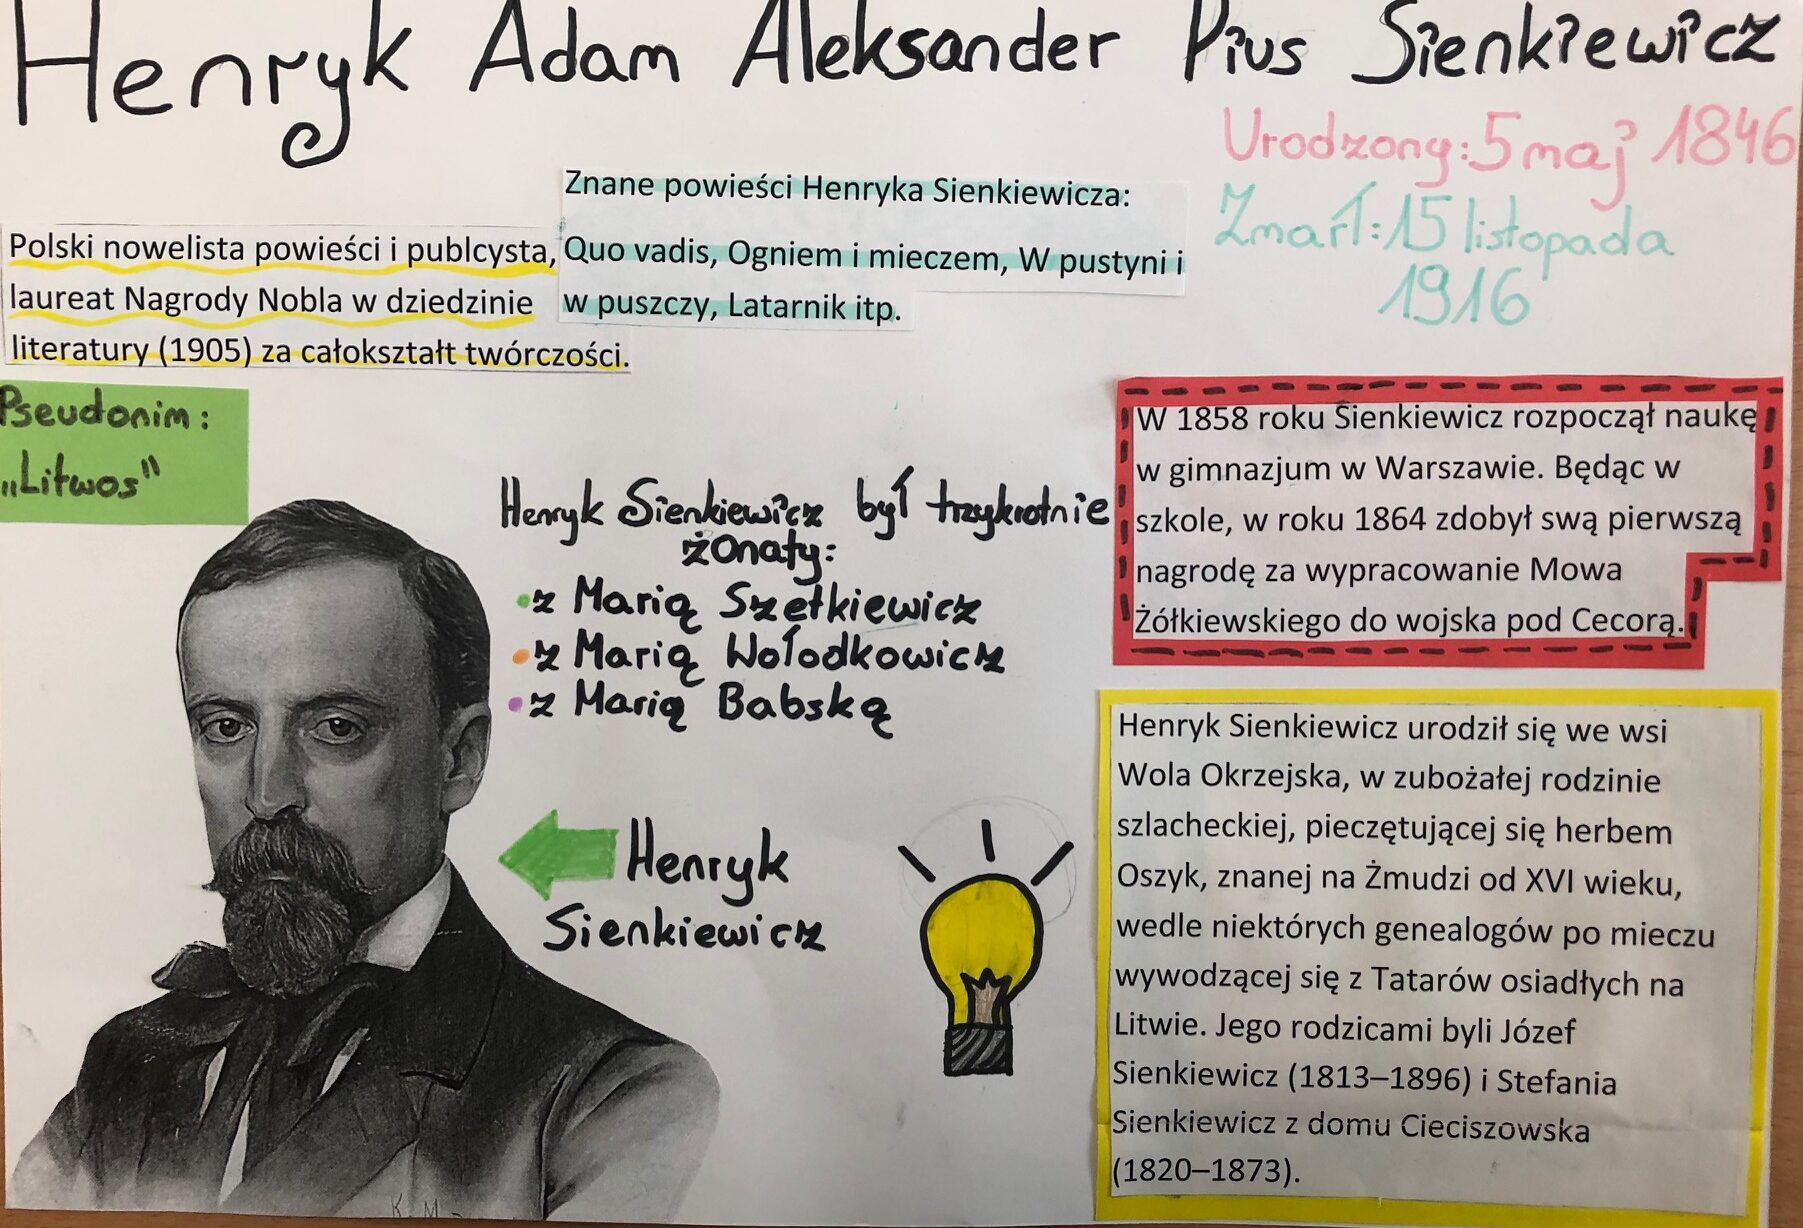 Henryk Adam Aleksander Pius Sienkiewicz
Urodzony: 5 maj 1846
Zmarł: 15 listopada
1916
Znane powieści Henryka Sienkiewicza:
Quo vadis, Ogniem i mieczem, W pustyni i
w puszczy, Latarnik itp.
Polski nowelista powieści i publcysta,
laureat Nagrody Nobla w dziedzinie
literatury (1905) za całokształt twórczości.
Pseudonim:
„Litwos"
Henryk Sienkiewicz był trzykrotnie
żonaty:
•z Marią Szetkiewicz
•z Marią Wołodkowicz
•z Marią Babską
Henryk
Sienkiewicz
W 1858 roku Sienkiewicz rozpoczął naukę
w gimnazjum w Warszawie. Będąc w
szkole, w roku 1864 zdobył swą pierwszą
nagrodę za wypracowanie Mowa
Żółkiewskiego do wojska pod Cecorą.
Henryk Sienkiewicz urodził się we wsi
Wola Okrzejska, w zubożałej rodzinie
szlacheckiej, pieczętującej się herbem
Oszyk, znanej na Żmudzi od XVI wieku,
wedle niektórych genealogów po mieczu
wywodzącej się z Tatarów osiadłych na
Litwie. Jego rodzicami byli Józef
Sienkiewicz (1813–1896) i Stefania
Sienkiewicz z domu Cieciszowska
(1820–1873).
K. M.